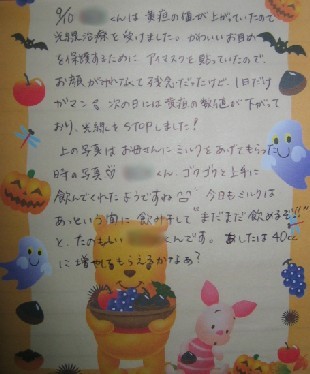 9/10 くんは 黄疸の値が上がっていたので
光線治療を受けました。かわいいお目め
を保護するために アイマスクを貼っていたので、
お顔がかくれてて残念だったけど、1日だけ
がマン 次の日には黄疸の数値が下がって
おり、光線もSTOPしました!
上の写真はお母さんにミルクをあげてもらった
時の写真 くん、ゴクゴクと上手に
飲んでくれたようですね 今日もミルクは
あっという間に飲み干して"まだまだ飲めるも"
と、たのもしい くんです。あしたは40cc
に増やしてもらえるかなぁ?